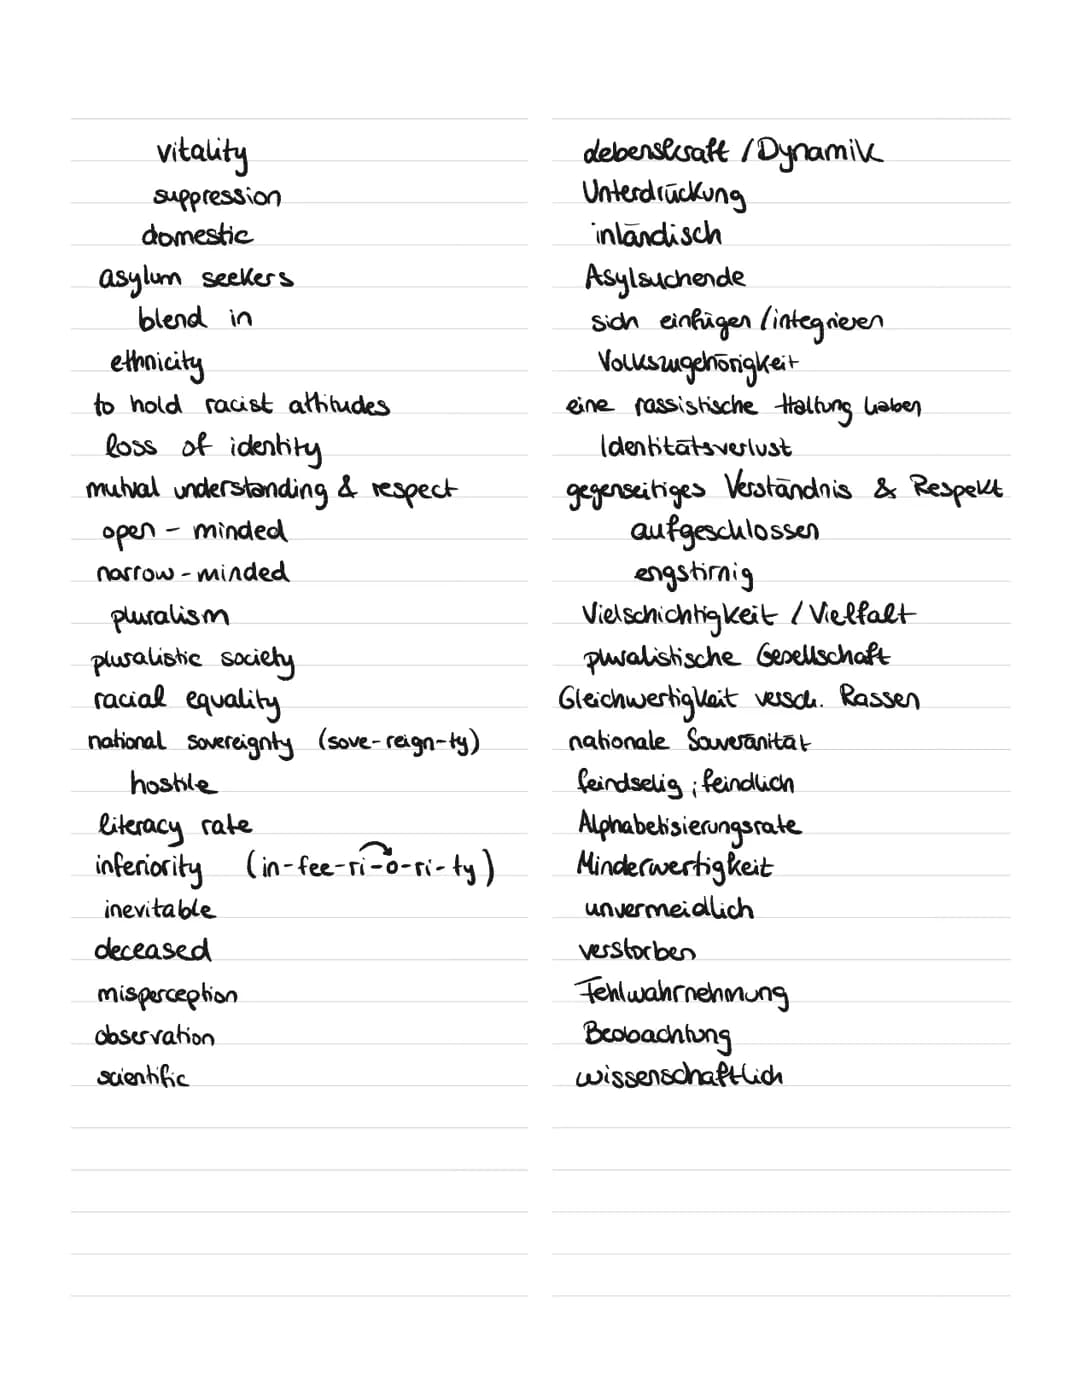 vitality debenskraft / Dynamik
suppression Unterdrückung
domestic inländisch
asylum seekers Asylsuchende
blend in sich einfügen / integrieren
ethnicity Volkszugehörigkeit
to hold racist attitudes eine rassistische Haltung haben
loss of identity Identitätsverlust
mutual understanding & respect gegenseitiges Verständnis & Respekt
open - minded aufgeschlossen
narrow - minded engstirnig
pluralism Vielschichtigkeit / Vielfalt
pluralistic society pluralistische Gesellschaft
racial equality Gleichwertigkeit versch. Rassen
national sovereignty (sove-reign-ty) nationale Souveränität
hostile feindselig ; feindlich
literacy rate Alphabetisierungsrate
inferiority (in-fee-ri-o-ri-ty) Minderwertigkeit
inevitable unvermeidlich
deceased verstorben
misperception Fehlwahrnehmung
observation Beobachtung
scientific wissenschaftlich